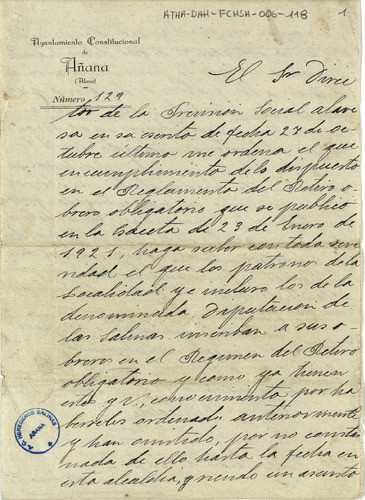 ATHA-DAH-FCHSA-006-118
1
Ayuntamiento Constitucional
de
AÑANA
(Alava)
Número 129
El Sr Direc
tor de la Prevision Social alave
sa en su escrito de fecha 27 de oc
tubre último me ordena el que
en cumplimiento de lo dispuesto
en el Reglamento del Retiro o-
brero obligatorio que se publico
en la Gaceta de 23 de Enero de
1921, haga saber con toda seve
ridad el que los patronos de la
localidad y e incluso los de la
denominada Diputacion de
las Salinas inscriban a sus o-
breros en el Regimen del Retiro
obligatorio y como ya tienen
estos y V, conocimiento por ha
berseles ordenado anteriormente
y han omitido, por no consta
nada de ello hasta la fecha en
esta alcaldia, siendo un asunto
A.C. HEREDEROS SALINAS
AÑANA